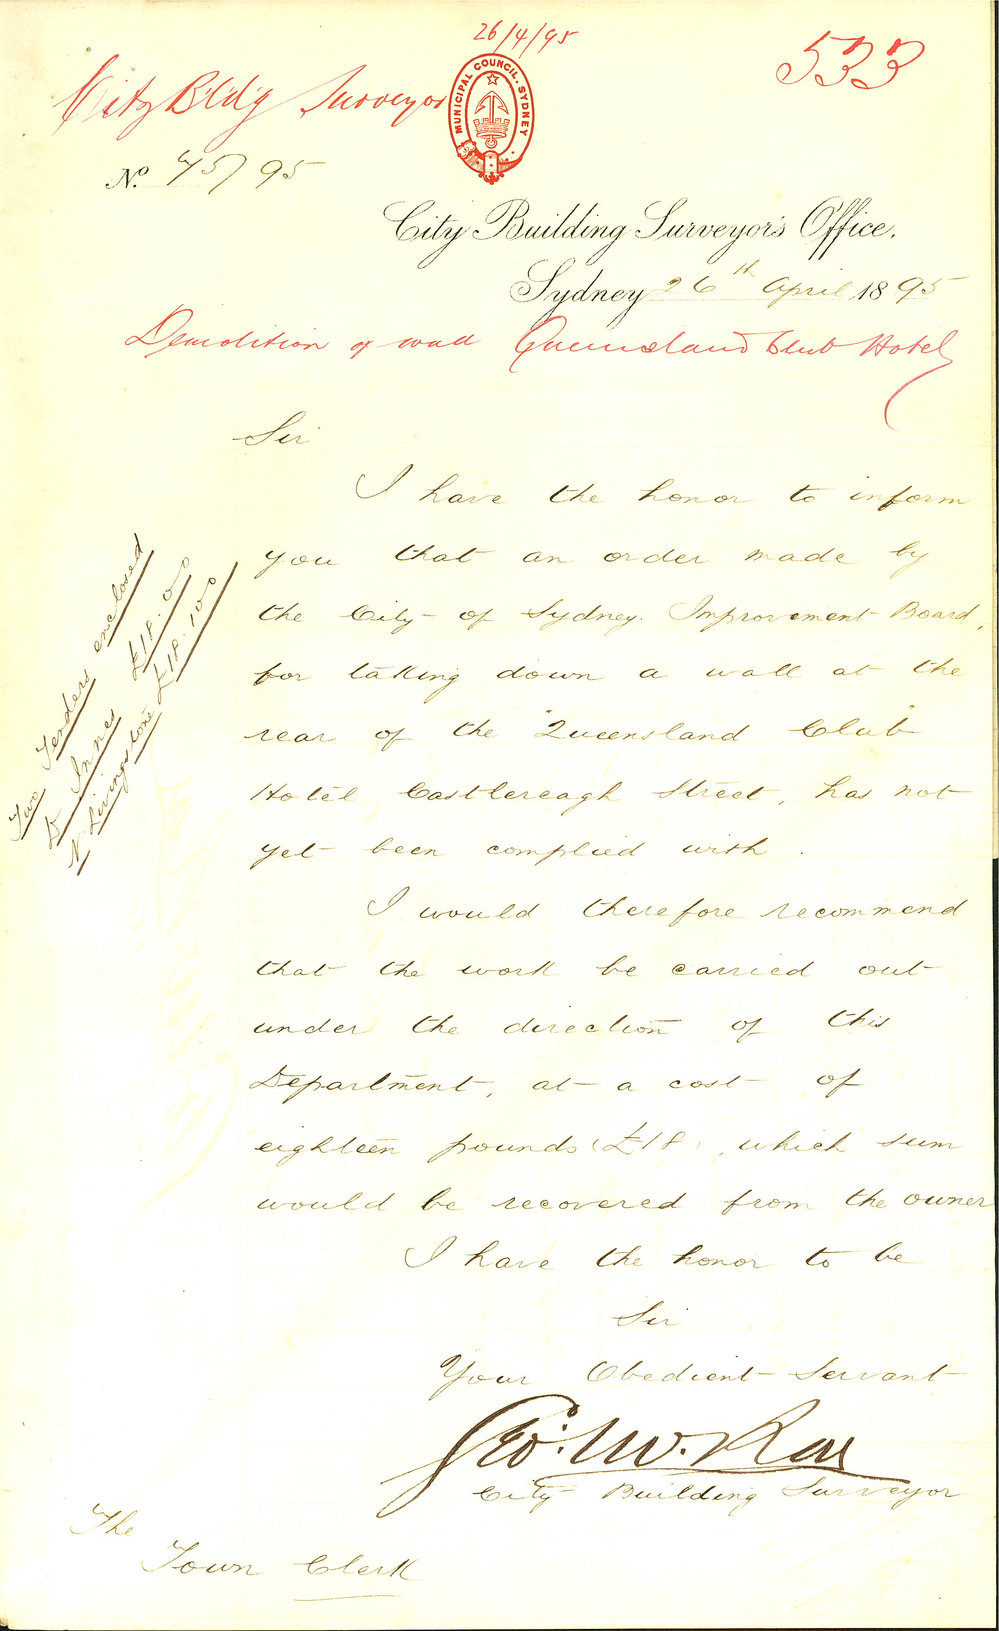 26/4/95
533
City Bldg Surveyor
MUNICIPAL COUNCIL. SYDNEY
No. 75/95
City Building Surveyor's Office.
Sydney 26th April 1895
Demolition of wall Queensland Club Hotel
Sir
I have the honor to inform
you that an order made by
the City of Sydney Improvement Board,
for taking down a wall at the
rear of the "Queensland Club"
Hotel Castlereagh Street, has not
yet been complied with.
I would therefore recommend
that the work be carried out
under the direction of this
Department, at a cost of
eighteen pounds (£18), which sum
would be recovered from the owner
I have the honor to be
Sir
Your Obedient Servant
Geo. W.
City Building Surveyor
The
Town Clerk
Two Tenders enclosed
D Innes £18.0.0
N Livingstone £18.10.0